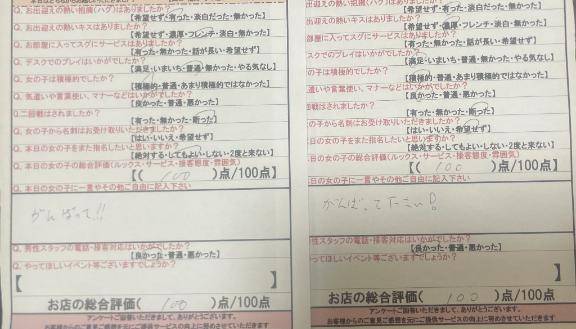 Q. お出迎えの熱い抱擁(ハグ)はありましたか?
【希望せず・有った・淡白だった・無かった】
Q. お出迎えの熱いキスはありましたか?
【希望せず・濃厚・フレンチ・淡白・無かった】
Q. お部屋に入ってスグにサービスはありましたか?
【有った・無かった・話が長い・希望せず】
Q. デスクでのプレイはいかがでしたか?
【満足・いまいち・普通・無かった・やる気なし】
Q. 女の子は積極的でしたか?
【積極的・普通・あまり積極的ではなかった】
Q. 気遣いや言葉使い、マナーなどはいかがでしたか?
【良かった・普通・悪かった】
Q. 二回戦はされましたか?
【有った・無かった・断った】
Q. 女の子から名刺はお受取りいただきましたか?
【はい・いいえ・希望せず】
Q. 本日の女の子をまた指名したいと思いますか?
【絶対する・してもよい・しない・2度と来ない】
Q. 本日の女の子の総合評価(ルックス・サービス・接客態度・雰囲気)
【( 100 )点/100点
Q. 本日の女の子に一言やその他ご自由に記入下さい
がんばって!!
Q. 男性スタッフの電話・接客対応はいかがでしたか?
【良かった・普通・悪かった】
Q. やってほしいイベント等ございますでしょうか?
【 】
お店の総合評価( 100 )点/100点
アンケートご回答いただきまして、ありがとうございます。
お客様からのご意見ご感想を元にご提供サービスの向上に努めさせていただきます
出迎えの熱い抱擁(ハグ)はありましたか?
【希望せず・有った・淡白だった・無かった】
出迎えの熱いキスはありましたか?
【希望せず・濃厚・フレンチ・淡白・無かった】
部屋に入ってスグにサービスはありましたか?
【有った・無かった・話が長い・希望せず】
スクでのプレイはいかがでしたか?
【満足・いまいち・普通・無かった・やる気なし】
の子は積極的でしたか?
【積極的・普通・あまり積極的ではなかった】
遣いや言葉使い、マナーなどはいかがでしたか?
【良かった・普通・悪かった】
回戦はされましたか?
【有った・無かった・断った】
の子から名刺はお受取りいただきましたか?
【はい・いいえ・希望せず】
日の女の子をまた指名したいと思いますか?
【絶対する・してもよい・しない・2度と来ない】
日の女の子の総合評価(ルックス・サービス・接客態度・雰囲気)
【( 100 )点/100点
日の女の子に一言やその他ご自由に記入下さい
がんばって下さい!
性スタッフの電話・接客対応はいかがでしたか?
【良かった・普通・悪かった】
ってほしいイベント等ございますでしょうか?
】
お店の総合評価( 100 )点/100点
アンケートご回答いただきまして、ありがとうございます。
お客様からのご意見ご感想を元にご提供サービスの向上に努めさせていただきます